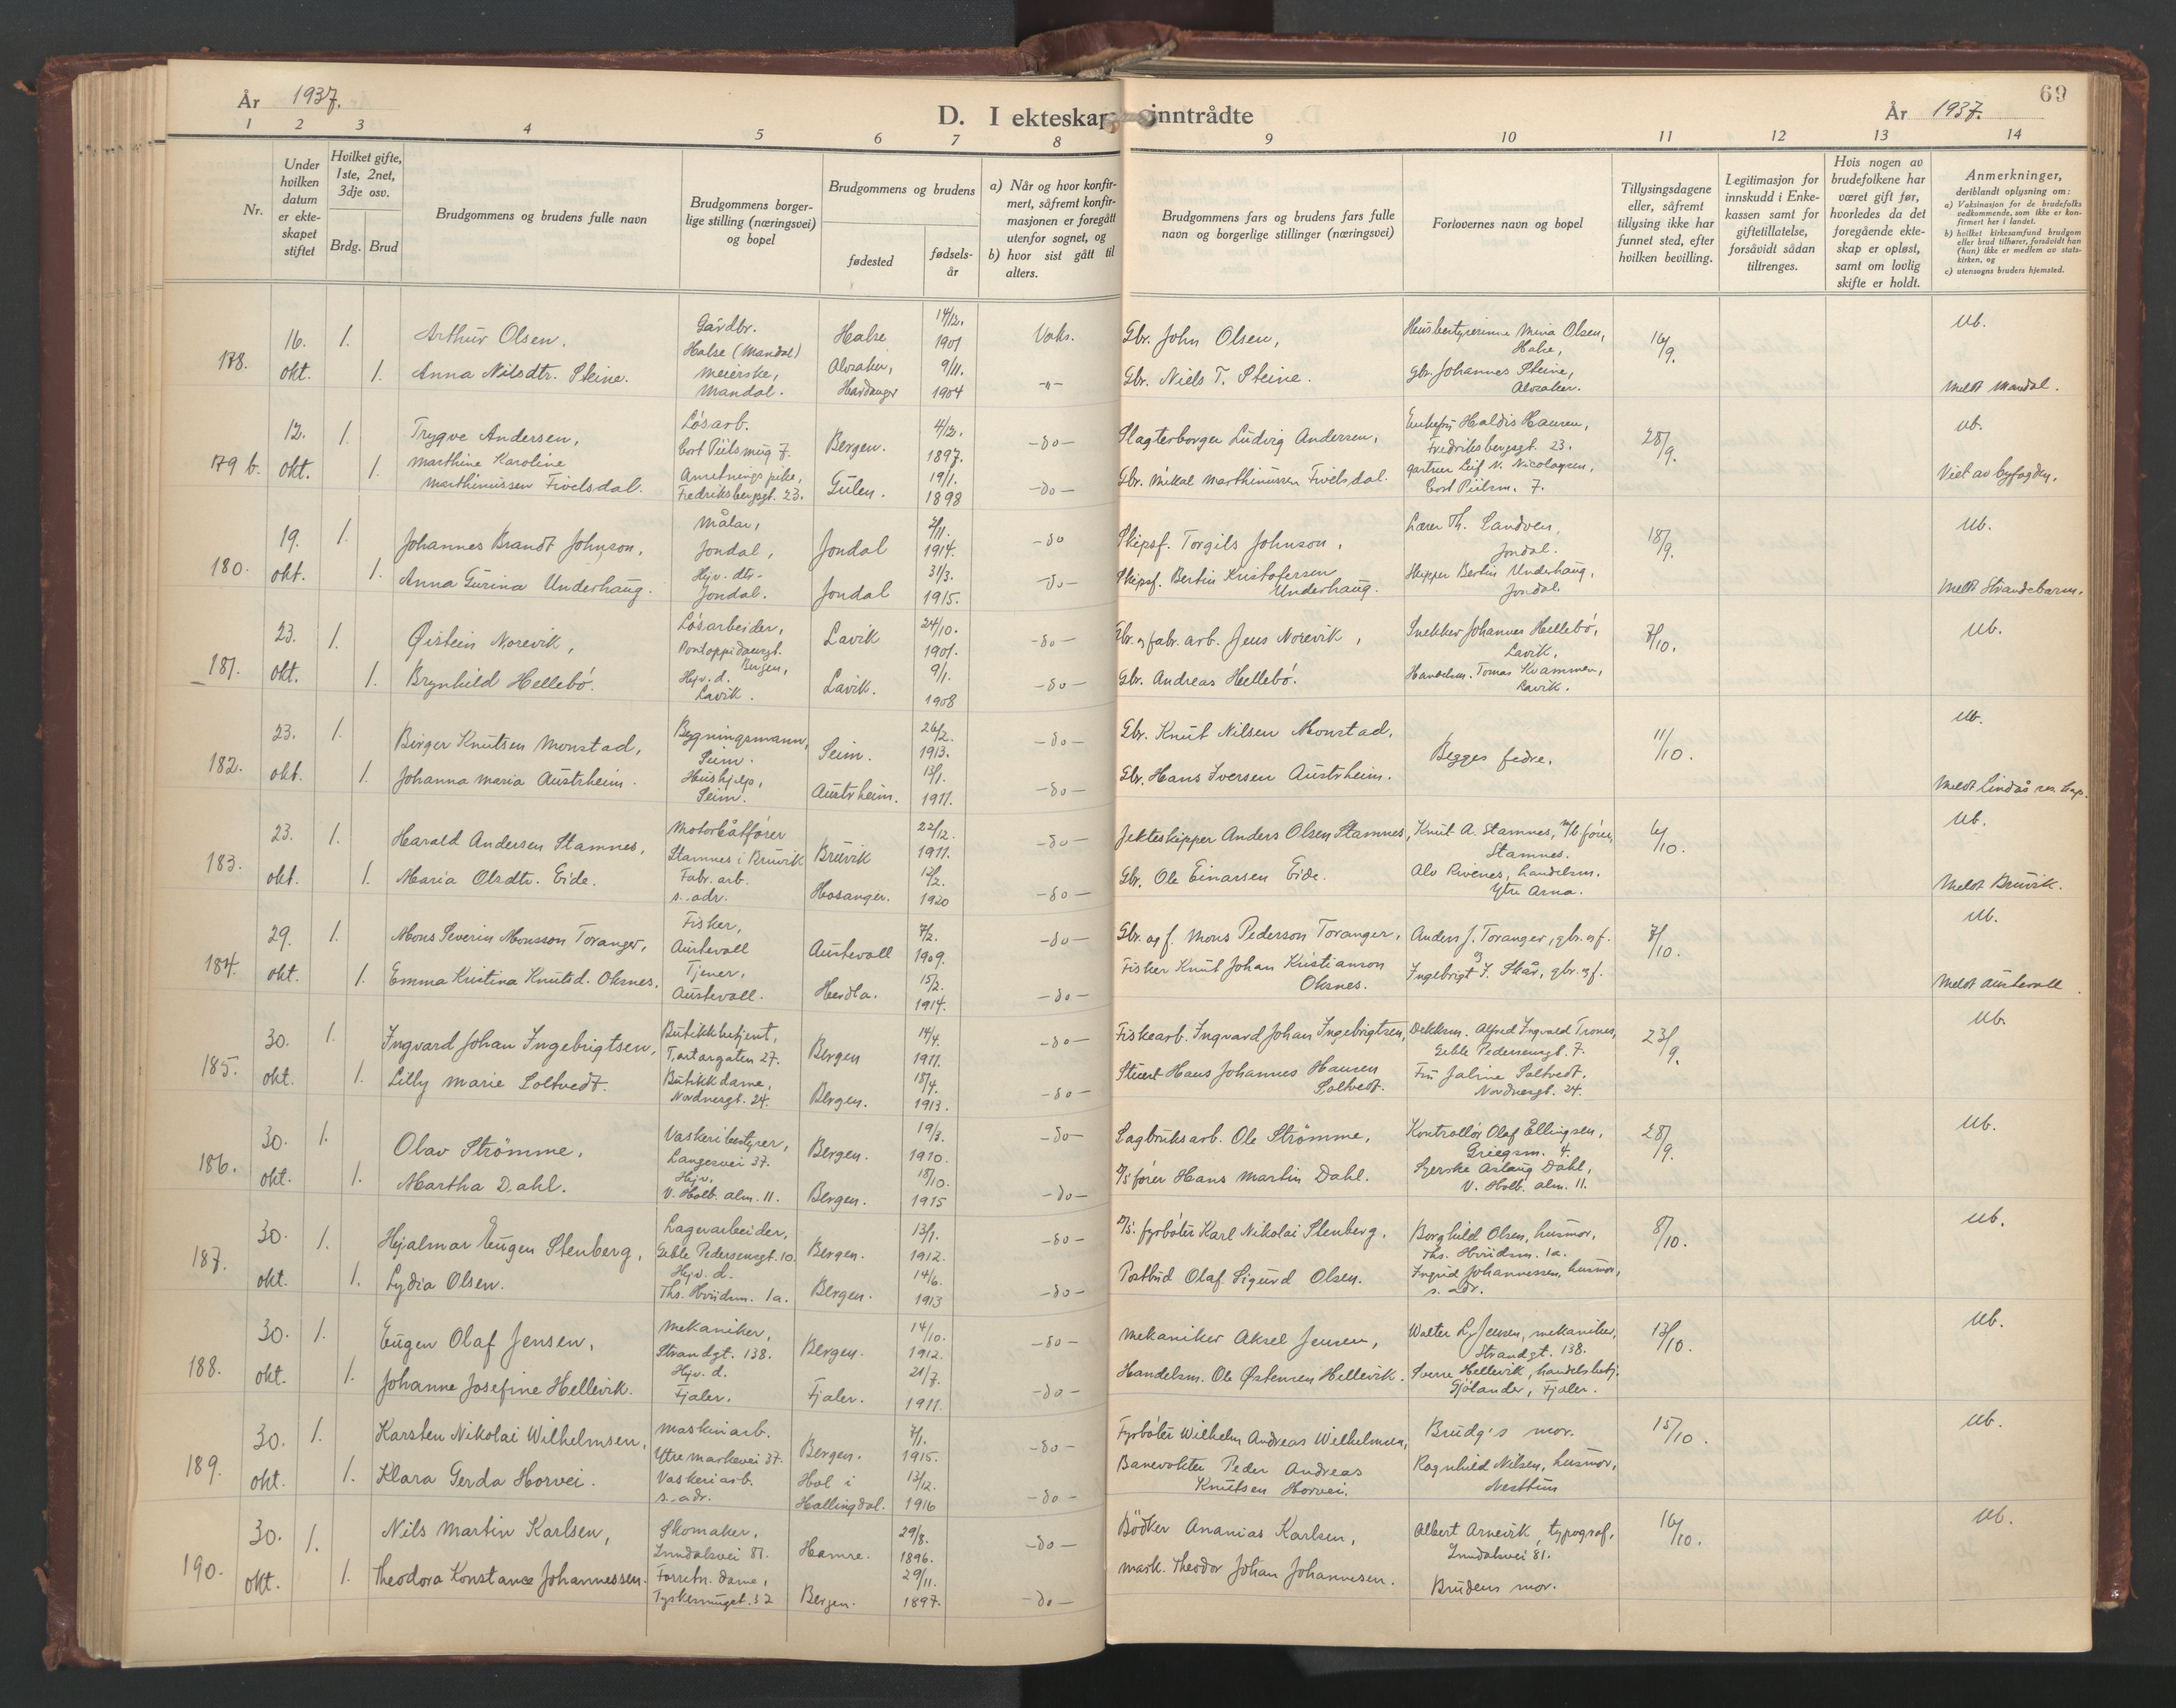 År 1937.
D. I ekteskap inntrådte
År 1937.
69
1 2 3 4 5 6 7 8 9 10 11 12 13 14
Nr.
Under hvilken datum er ekteskapet stiftet
Hvilket gifte, 1ste, 2net, 3dje osv.
Brdg. Brud
Brudgommens og brudens fulle navn
Brudgommens borgerlige stilling (næringsvei) og bopel
Brudgommens og brudens
fødested
fødselsår
a) Når og hvor konfirmert, såfremt konfirmasjonen er foregått utenfor sognet, og
b) hvor sist gått til alters.
Brudgommens fars og brudens fars fulle navn og borgerlige stillinger (næringsvei)
Forlovernes navn og bopel
Tillysingsdagene eller, såfremt tillysing ikke har funnet sted, efter hvilken bevilling.
Legitimasjon for innskudd i Enkekassen samt for giftetillatelse, forsåvidt sådan tiltrenges.
Hvis nogen av brudefolkene har været gift før, hvorledes da det foregående ekteskap er opløst, samt om lovlig skifte er holdt.
Anmerkninger,
deriblandt oplysning om:
a) Vaksinasjon for de brudefolks vedkommende, som ikke er konfirmert her i landet.
b) hvilket kirkesamfund brudgom eller brud tilhører, forsåvidt han (hun) ikke er medlem av statskirken, og
c) utensogns bruders hjemsted.
178. 16. okt. 1. Arthur Olsen. Gårdbr. Halse (Mandal) Halse 14/12. 1901 Vaks. Gbr. John Olsen, Husbestyrerinne Mina Olsen, Halse, 16/9. Ub.
1. Anna Nilsdtr. Steine. Meierske, Mandal. Alvzaker, Hardanger 9/11. 1904 -"- Gbr. Niels T. Steine. Gbr. Johannes Steine, Alvzaker. Meldt Mandal.
179 b. 12. okt. 1. Trygve Andersen, Løsarb. Cort Piilsmug 7. Bergen. 4/12. 1897. -do- Slagterborger Ludvig Andersen, Enkefru Haldis Hansen, Fredriksbergsgt. 23. 28/9. Ub.
1. Marthine Karoline Marthinussen Fivelsdal. Anretningspike, Fredriksbergsgt. 23. Gulen. 19/1. 1898 -do- Gbr. Mikal Marthinussen Fivelsdal. Gartner Leif N. Nicolaysen, Cort Piilsm. 7. Viet av byfogden.
180. 19. okt. 1. Johannes Brandt Johnson, Målar, Jondal, Jondal 2/11. 1914. -do Skipsf. Torgils Johnson, Lærer Th. Sandven, Jondal. 18/9. Ub.
1. Anna Gurina Underhaug. Hjv. dtr. Jondal. Jondal 31/3. 1915. -do- Skipsf. Bertin Kristofersen Underhaug. Skipper Bertin Underhaug, Jondal. Meldt Strandebarm.
181. 23. okt. 1. Øistein Norevik, Løsarbeider, Pontoppidansgt. Bergen, Lavik 24/10. 1901. -do- Gbr. og fabr. arb. Jens Norevik, Snekker Johannes Hellebö, Lavik, 7/10. Ub.
1. Brynhild Hellebö. Hjv. d. Lavik. Lavik. 9/1. 1908 -do- Gbr. Andreas Hellebö. Handelsm. Tomas Kvammen, Lavik.
182. 23. okt. 1. Birger Knutsen Monstad, Bygningsmann, Seim. Seim. 26/2. 1913. -do- Gbr. Knut Nilsen Monstad, Begges fedre. 11/10. Ub.
1. Johanna Maria Austrheim. Hushjelp, Seim. Austrheim. 13/1. 1911. -do- Gbr. Hans Iversen Austrheim. Meldt Lindås res. kap.
183. 23. okt. 1. Harald Andersen Stamnes, Motorbåtfører Stamnes i Bruvik Bruvik 22/12. 1911. -do- Jekteskipper Anders Olsen Stamnes, Knut A. Stamnes, m/b. fører, Stamnes. 6/10. Ub.
1. Maria Olsdtr. Eide. Fabr. arb. s. adr. Hosanger. 12/2. 1920 -do- Gbr. Ole Einarsen Eide. Alv Rivenes, handelsm. Ytre Arna. Meldt Bruvik.
184. 29. okt. 1. Mons Severin Monsson Toranger, Fisker, Austevoll Austevoll 7/2. 1909. -do- Gbr. og f. Mons Pederson Toranger, Anders J. Toranger, gbr. og f. og 7/10. Ub.
1. Emma Kristina Knutsd. Oksnes. Tjener, Austevoll. Herdla. 15/2. 1914. -do- Fisker Knut Johan Kristianson Oksnes. Ingebrigt J. Skår, gbr. og f. Meldt Austevoll.
185. 30. okt. 1. Ingvard Johan Ingebrigtsen, Butikkbetjent, Tartargaten 27. Bergen 14/4. 1911. -do- Fiskearb. Ingvard Johan Ingebrigtsen, Dekksm. Alfred Ingvald Trones, Geble Pedersensgt. 7. 23/9. Ub.
1. Lilly Marie Soltvedt. Butikkdame, Nordnesgt. 24. Bergen. 18/4. 1913. -do- Stuert Hans Johannes Hansen Soltvedt. Fru Jaline Soltvedt, Nordnesgt. 24.
186. 30. okt. 1. Olav Strömme, Vaskeribestyrer, Langesvei 37. Bergen. 19/3. 1910. -do- Sagbruksarb. Ole Strömme, Kontrollör Olaf Ellingsen, Griegsm. 4. 28/9. Ub.
1. Martha Dahl. Hjv. V. Holb. alm. 11. Bergen. 15/10. 1915 -do- D/s fører Hans Martin Dahl. Syerske Aslaug Dahl, V. Holb. alm. 11.
187. 30. okt. 1. Hjalmar Eugen Stenberg, Lagerarbeider, Geble Pedersensgt. 10. Bergen. 13/1. 1912. -do- D/s. fyrböter Karl Nikolai Stenberg, Borghild Olsen, husmor, Ths. Hviidsm. 1a. 8/10. Ub.
1. Lydia Olsen. Hjv. d. Ths. Hviidsm. 1a. Bergen. 14/6. 1913 -do- Postbud Olaf Sigurd Olsen. Ingrid Johannessen, husmor, s. adr.
188. 30. okt. 1. Eugen Olaf Jensen, Mekaniker, Strandgt. 138. Bergen. 14/10. 1912. -do- Mekaniker Aksel Jensen, Walter L. Jensen, mekaniker, Strandgt. 138. 13/10. Ub.
1. Johanne Josefine Hellevik. Hjv. d. Fjaler. Fjaler. 21/7. 1911. -do- Handelsm. Ole Østensen Hellevik. Sverre Hellevik, handelsbetj. Gjölander, Fjaler.
189. 30. okt. 1. Karsten Nikolai Wilhelmsen, Maskinarb. Ytre Markevei 37. Bergen. 7/1. 1915. -do- Fyrböter Wilhelm Andreas Wilhelmsen, Brudg's mor. 15/10. Ub.
1. Klara Gerda Horvei. Vaskeriarb. s. adr. Hol i Hallingdal. 13/12. 1916 -do- Banevokter Peder Andreas Knutsen Horvei. Ragnhild Nilsen, husmor, Nesttun
190. 30. okt. 1. Nils Martin Karlsen, Skomaker, Lundalsvei 81. Hamre. 29/8. 1896. -do- Bödker Ananias Karlsen, Albert Arnevik, typograf, Lundalsvei 81. 16/10. Ub.
1. Theodora Konstance Johannessen. Forretn. dame, Tyskesmuget. 32 Bergen. 29/11. 1897. -do- Mask. Theodor Johan Johannesen. Brudens mor.